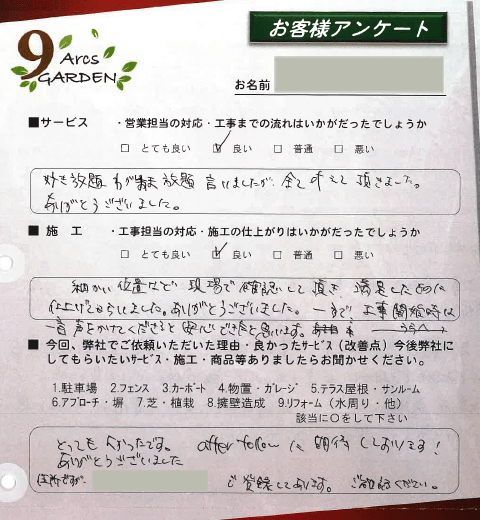 9 Arcs GARDEN
お客様アンケート
お名前
■サービス ・営業担当の対応・工事までの流れはいかがだったでしょうか
□ とても良い ☑ 良い □ 普通 □ 悪い
好き放題 わがまま放題 言いましたが、全て叶えて頂きました。
ありがとうございました。
■施 工 ・工事担当の対応・施工の仕上がりはいかがだったでしょうか
□ とても良い ☑ 良い □ 普通 □ 悪い
細かい位置など 現場で確認して頂き 満足したものに
仕上げてもらいました。ありがとうございました。一つまで、工事開始時は
一言声をかけてくださると安心できたと思います。
■ 今回、弊社でご依頼いただいた理由・良かったサービス（改善点）今後弊社に
してもらいたいサービス・施工・商品等ありましたらお聞かせください。
1.駐車場 2.フェンス 3.カーポート 4.物置・ガレージ 5.テラス屋根・サンルーム
6.アプローチ・塀 7.芝・植栽 8.擁壁造成 9.リフォーム（水周り・他）
該当に○をして下さい
とっても良かったです。after followに期待しております！
ありがとうございました
住所ですが、 で登録してあります。ご確認ください。